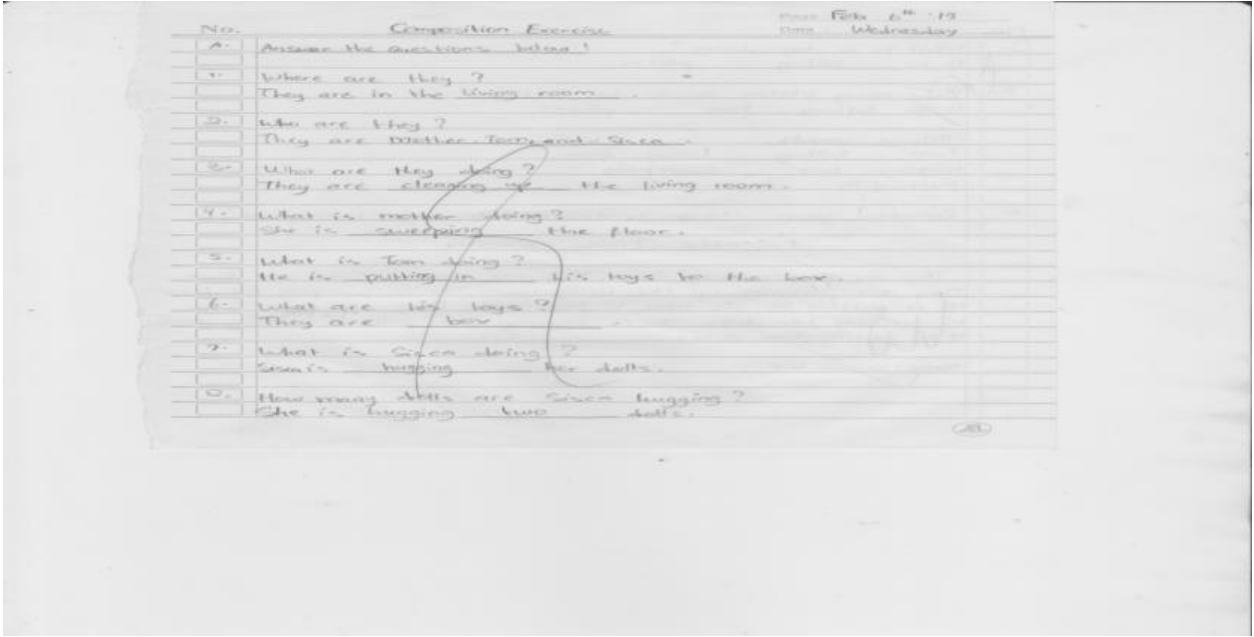 Feb 6th '19
No. Composition Exercise Wednesday
A. Answer the questions below!
1. Where are they?
They are in the living room.
2. Who are they?
They are Mother, Tom, and Sisca.
3. What are they doing?
They are cleaning up the living room.
4. What is mother doing?
She is sweeping the floor.
5. What is Tom doing?
He is putting in his toys to the box.
6. What are his toys?
They are box.
7. What is Sisca doing?
Sisca is hugging her dolls.
How many dolls are Sisca hugging?
She is hugging two dolls.